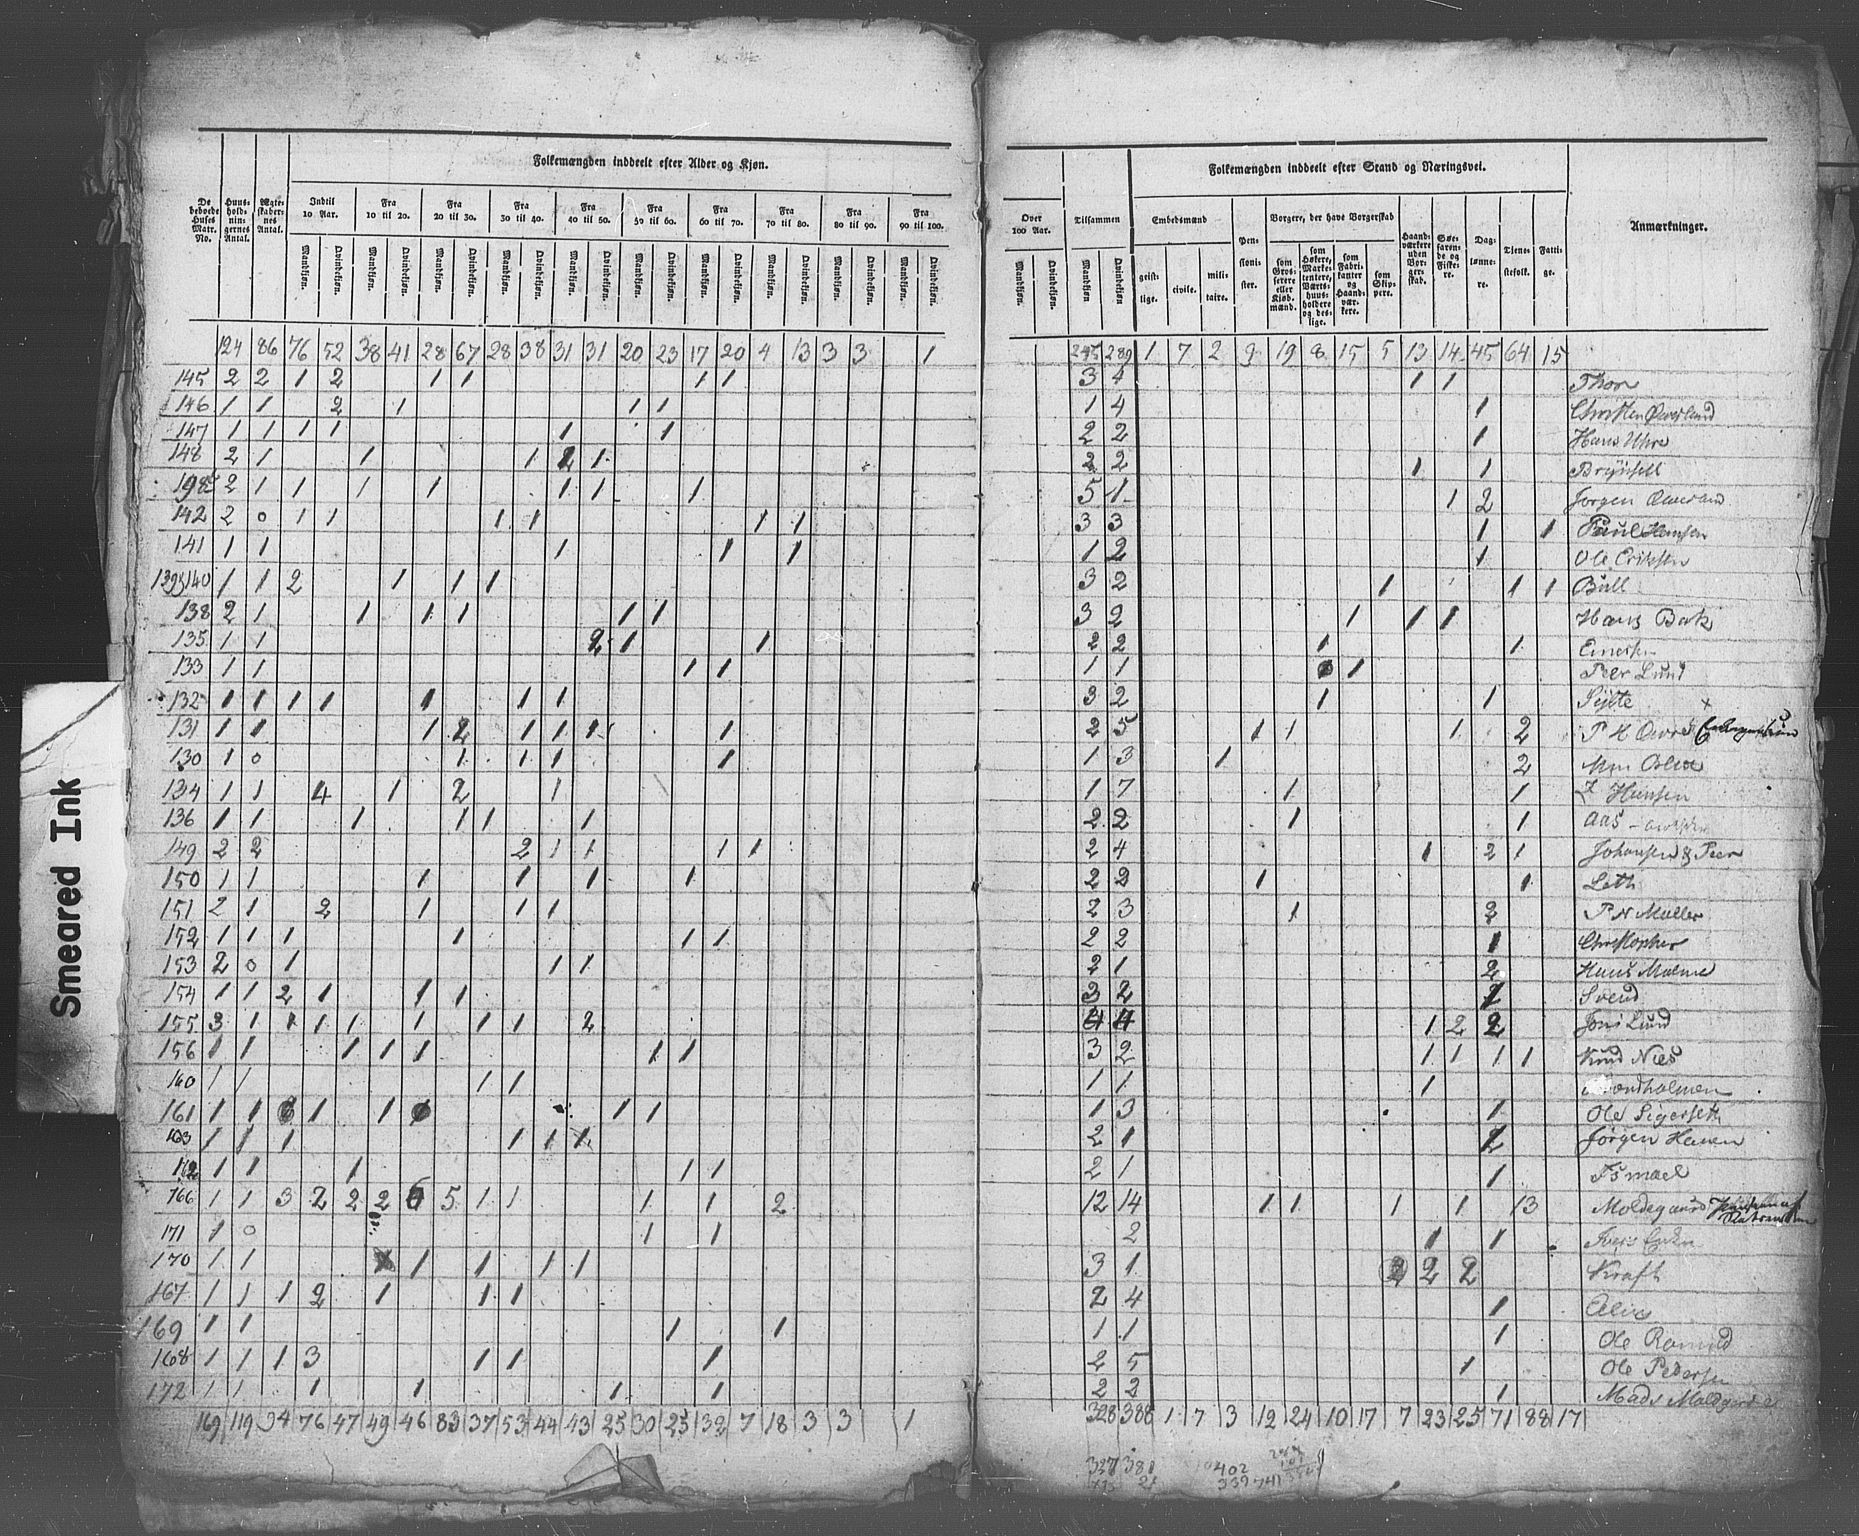 Folkemængden inddeelt efter Alder og Kjøn.
De beboede Huses Matr. No.
Huus-hold-nin-gernes Antal.
Ægte-skaber-nes Antal.
Indtil 10 Aar.
Fra 10 til 20.
Fra 20 til 30.
Fra 30 til 40.
Fra 40 til 50.
Fra 50 til 60.
Fra 60 til 70.
Fra 70 til 80.
Fra 80 til 90.
Fra 90 til 100.
Mandkjøn. Qvindekjøn. Mandkjøn. Qvindekjøn. Mandkjøn. Qvindekjøn. Mandkjøn. Qvindekjøn. Mandkjøn. Qvindekjøn. Mandkjøn. Qvindekjøn. Mandkjøn. Qvindekjøn. Mandkjøn. Qvindekjøn. Mandkjøn. Qvindekjøn. Mandkjøn. Qvindekjøn.
124 86 76 52 38 41 28 67 28 38 31 31 20 23 17 20 4 13 3 3 1
145 2 2 1 2 1 1 1 1
146 1 1 2 1 1 1
147 1 1 1 1 1 1
148 2 1 1 1 2 1
198 2 1 1 1 1 1 1 1
142 2 0 1 1 1 1 1 1
141 1 1 1 1 1
139 140 1 1 2 1 1 1
138 2 1 1 1 1 1 1
135 1 1 2 1 1
133 1 1 1 1
132 1 1 1 1 1 1 1
131 1 1 1 2 1 1 1 1
130 1 0 1 1 1 1
134 1 1 4 1 2 1
136 1 1 1 1 1 1
149 2 2 2 1 1 1 1
150 1 1 1 1 1 1
151 2 1 2 1 1 1
152 1 1 1 1 1 1
153 2 0 1 1 1
154 1 1 2 1 1 1
155 3 1 1 1 1 1 1 1 2
156 1 1 1 1 1 1 1
160 1 1 1 1
161 1 1 1 1 1 1
163 1 1 1 1 1 1
162 1 1 1 1 1
166 1 1 3 2 2 2 6 5 1 1 1 1 2
171 1 0 1 1
170 1 1 1 1 1 1
167 1 1 1 2 1 1 1
169 1 1 1 1
168 1 1 1 3 1 1 1
172 1 1 1 1 1 1
169 119 94 76 47 49 46 83 37 53 44 43 25 30 25 32 7 18 3 3 1
Folkemængden inddeelt efter Stand og Næringsvei.
Over 100 Aar.
Tilsammen
Embedsmænd
Pen-sioni-ster.
Borgere, der have Borgerskab
Haand-værkere uden Bor-ger-skab.
Søe-faren-de og Fiske-re.
Dag-lønne-re.
Tjene-stefolk.
Fatti-ge.
Anmærkninger.
Mandkjøn. Qvindekjøn. Mandkjøn Qvindekjøn.
geist-lige.
civile.
mili-taire.
som Gros-serere eller Kjøb-mænd.
som Høkere, Marke-tentere, Værts-huus-holdere og des-lige.
som Fabri-kanter og Haand-vær-kere.
som Skip-pere.
245 289 1 7 2 9 19 8 15 5 13 14 45 64 15
3 4 1 1 Thor
1 4 1 Christen Øverland
2 2 1 Hans
2 2 1 1
5 1 1 2 Jørgen
3 3 1 1 Poul Hansen
1 2 1 Ole Eriksen
3 2 1 1 1 Bull
3 2 1 1 1 Hans Bak
2 2 1 1
1 1 1 Peer Lund
3 2 1 1
2 5 1 1 1 2 P H
1 3 1 2
1 7 1 1 Hansen
2 2 1 1 Aas
2 4 1 2 1 Johansen & Peer
2 2 1 1 Leth
2 3 1 2 P N Møller
2 2 1 Christopher
2 1 2 Hans Malme
3 2 Svend
4 4 1 2 2 Lund
3 2 1 1 1 1 Knud Niels
1 1 1
1 3 1 Ole
2 1 2 Jørgen
2 1 1 Ismael
12 14 1 1 1 1 13 Moldegaard
2 1 1
3 1 2 2 Kraft
2 4 1
1 1 1 Ole
2 5 1 Ole Pedersen
2 2 1 Mads
328 388 1 7 3 12 24 10 17 7 23 25 71 88 17
402
339 741
Smeared Ink